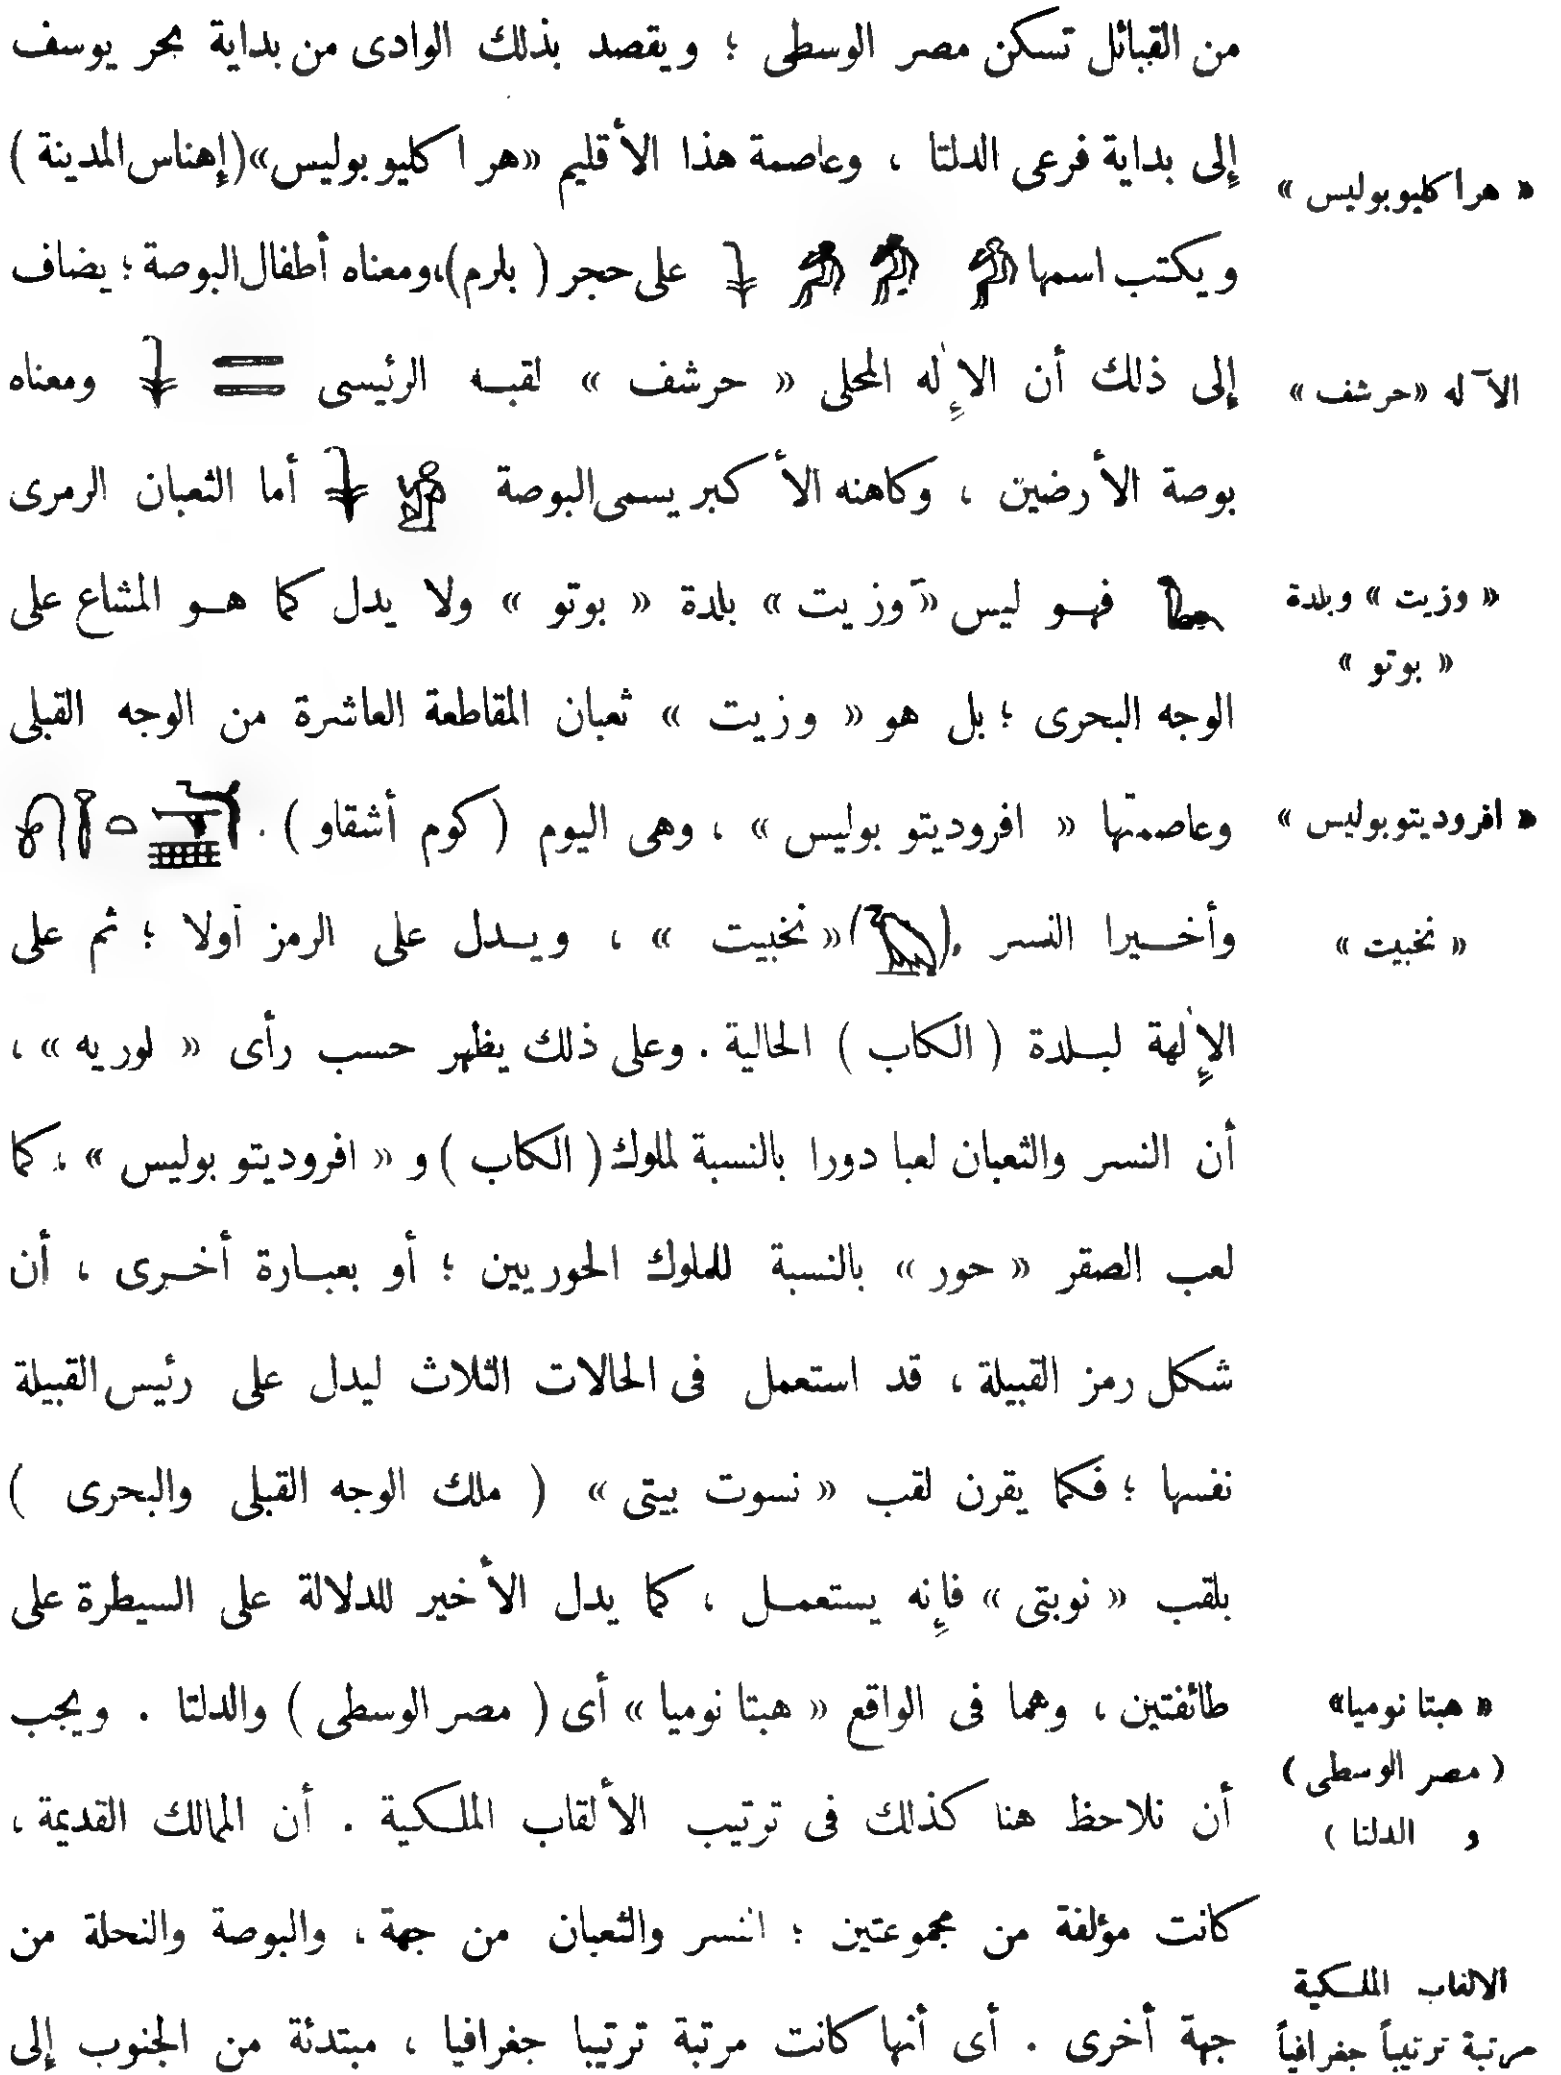 من القبائل تسكن مصر الوسطى ؛ ويقصد بذلك الوادى من بداية بحر يوسف
إلى بداية فرعى الدلتا ، وعاصمة هذا الأقليم «هراكليوبوليس» (إهناس المدينة )
« هراكليوبوليس »
ويكتب اسمها على حجر ( بلرم)، ومعناه أطفال البوصة ؛ يضاف
إلى ذلك أن الإله المحلى « حرشف » لقبه الرئيسى ومعناه
الآله «حرشف »
بوصة الأرضين ، وكاهنه الأكبر يسمى البوصة أما الثعبان الرمزى
فهو ليس « وزيت » بلدة « بوتو » ولا يدل كما هو المشاع على
« وزيت » وبلدة
« بوتو »
الوجه البحرى ؛ بل هو « وزيت » ثعبان المقاطعة العاشرة من الوجه القبلى
وعاصمتها « افروديتو بوليس » ، وهى اليوم ( كوم أشقاو ) .
« افروديتوبوليس »
وأخيرا النسر ( ) « نخبيت » ، ويدل على الرمز أولا ؛ ثم على
« نخبيت »
الإلهة لبلدة ( الكاب ) الحالية . وعلى ذلك يظهر حسب رأى « لوريه » ،
أن النسر والثعبان لعبا دورا بالنسبة لملوك ( الكاب ) و « افروديتو بوليس » ، كما
لعب الصقر « حور » بالنسبة للملوك الحوريين ؛ أو بعبارة أخرى ، أن
شكل رمز القبيلة ، قد استعمل فى الحالات الثلاث ليدل على رئيس القبيلة
نفسها ؛ فكما يقرن لقب « نسوت بيتى » ( ملك الوجه القبلى والبحرى )
بلقب « نوبتى » فإنه يستعمل ، كما يدل الأخير للدلالة على السيطرة على
طائفتين ، وهما فى الواقع « هبتا نوميا » أى ( مصر الوسطى ) والدلتا . ويجب
« هبتا نوميا»
( مصر الوسطى )
و الدلتا )
أن نلاحظ هنا كذلك فى ترتيب الألقاب الملكية . أن الممالك القديمة ،
كانت مؤلفة من مجموعتين : النسر والثعبان من جهة ، والبوصة والنحلة من
الالقاب الملكية
مرتبة ترتيباً جغرافياً
جهة أخرى . أى أنها كانت مرتبة ترتيبا جغرافيا ، مبتدئة من الجنوب إلى